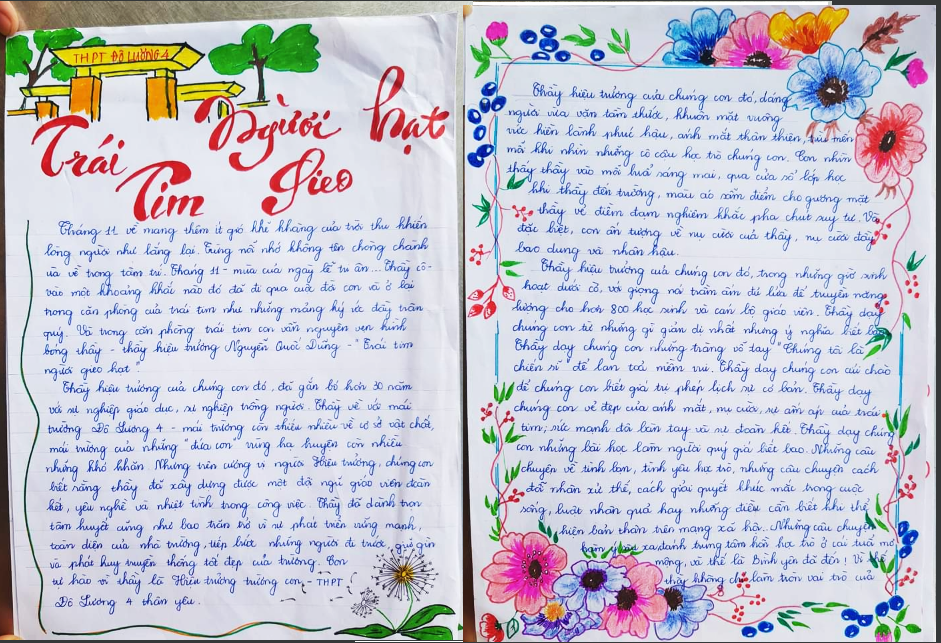 THPT ĐÔ LƯƠNG 4
Trái Tim Người Gieo hạt
Tháng 11 về mang thêm ít gió khẽ khàng của trời thu khiến
lòng người như lắng lại. Từng nỗi nhớ không tên chông chênh
ùa về trong tâm trí. Tháng 11 - mùa của ngày lễ tri ân... Thầy cô -
vào một khoảng khắc nào đó đã đi qua cuộc đời con và ở lại
trong căn phòng của trái tim như những mảng ký ức đầy trân
quý. Và trong căn phòng trái tim con vẫn nguyên vẹn hình
bóng thầy - thầy hiệu trưởng Nguyễn Quốc Dũng - "Trái tim
người gieo hạt"
Thầy hiệu trưởng của chúng con đó, đã gắn bó hơn 30 năm
với sự nghiệp giáo dục, sự nghiệp trồng người. Thầy về với mái
trường Đô Lương 4 - mái trường còn thiếu nhiều về cơ sở vật chất,
mái trường của những "đứa con" vùng hạ huyện còn nhiều
những khó khăn. Nhưng trên cương vị người Hiệu trưởng, chúng con
biết rằng thầy đã xây dựng được một đội ngũ giáo viên đoàn
kết, yêu nghề và nhiệt tình trong công việc. Thầy đã dành trọn
tâm huyết cũng như bao trăn trở vì sự phát triển vững mạnh,
toàn diện của nhà trường, tiếp bước những người đi trước, giữ gìn
và phát huy truyền thống tốt đẹp của trường. Con
tự hào vì thầy là Hiệu trưởng trường con - THPT
Đô Lương 4 thân yêu.
Thầy hiệu trưởng của chúng con đó, dáng
người vừa vặn tầm thước, khuôn mặt vuông
vức hiền lành phúc hậu, ánh mắt thân thiện, trìu mến
mỗi khi nhìn những cô cậu học trò chúng con. Con nhìn
thấy thầy vào mỗi buổi sáng mai, qua cửa sổ lớp học
khi thầy đến trường, màu áo sẫm điểm cho gương mặt
thầy vẻ điềm đạm nghiêm khắc pha chút suy tư. Và
đặc biệt, con ấn tượng về nụ cười của thầy, nụ cười đầy
bao dung và nhân hậu.
Thầy hiệu trưởng của chúng con đó, trong những giờ sinh
hoạt dưới cờ, với giọng nói trầm ấm đủ lửa để truyền năng
lượng cho hơn 800 học sinh và cán bộ giáo viên. Thầy dạy
chúng con từ những gì giản dị nhất nhưng ý nghĩa biết bao
Thầy dạy chúng con những tràng vỗ tay "Chúng tôi là
chiến sĩ" để lan toả niềm vui. Thầy dạy chúng con cúi chào
để chúng con biết giá trị phép lịch sự cơ bản. Thầy dạy
chúng con vẻ đẹp của ánh mắt, nụ cười, sự ấm áp của trái
tim, sức mạnh đôi bàn tay và sự đoàn kết. Thầy dạy chúng
con những bài học làm người quý giá biết bao. Những câu
chuyện về tình bạn, tình yêu học trò, những câu chuyện cách
đối nhân xử thế, cách giải quyết khúc mắc trong cuộc
sống, luật nhân quả hay những điều cần biết khi thể
hiện bản thân trên mạng xã hội. Những câu chuyện
đánh trúng tâm hồn học trò ở cái tuổi mơ
mộng, và thế là Bình yên đã đến! Vì thế
thầy không chỉ làm tròn vai trò của